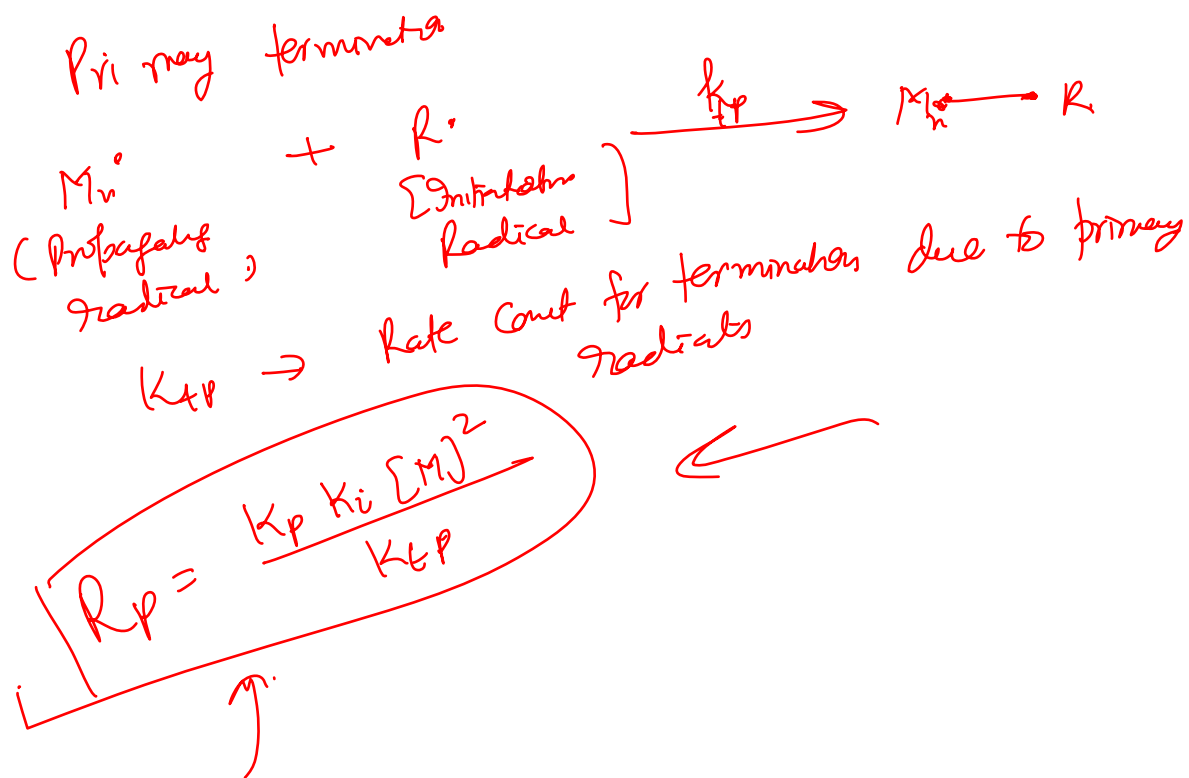 Primary termination
Mn• + R• ktp → Mn—R
(Propagating radical)
[Initiation Radical]
Ktp → Rate Const for termination due to primary radicals
Rp = Kp Ki [M]² / Ktp